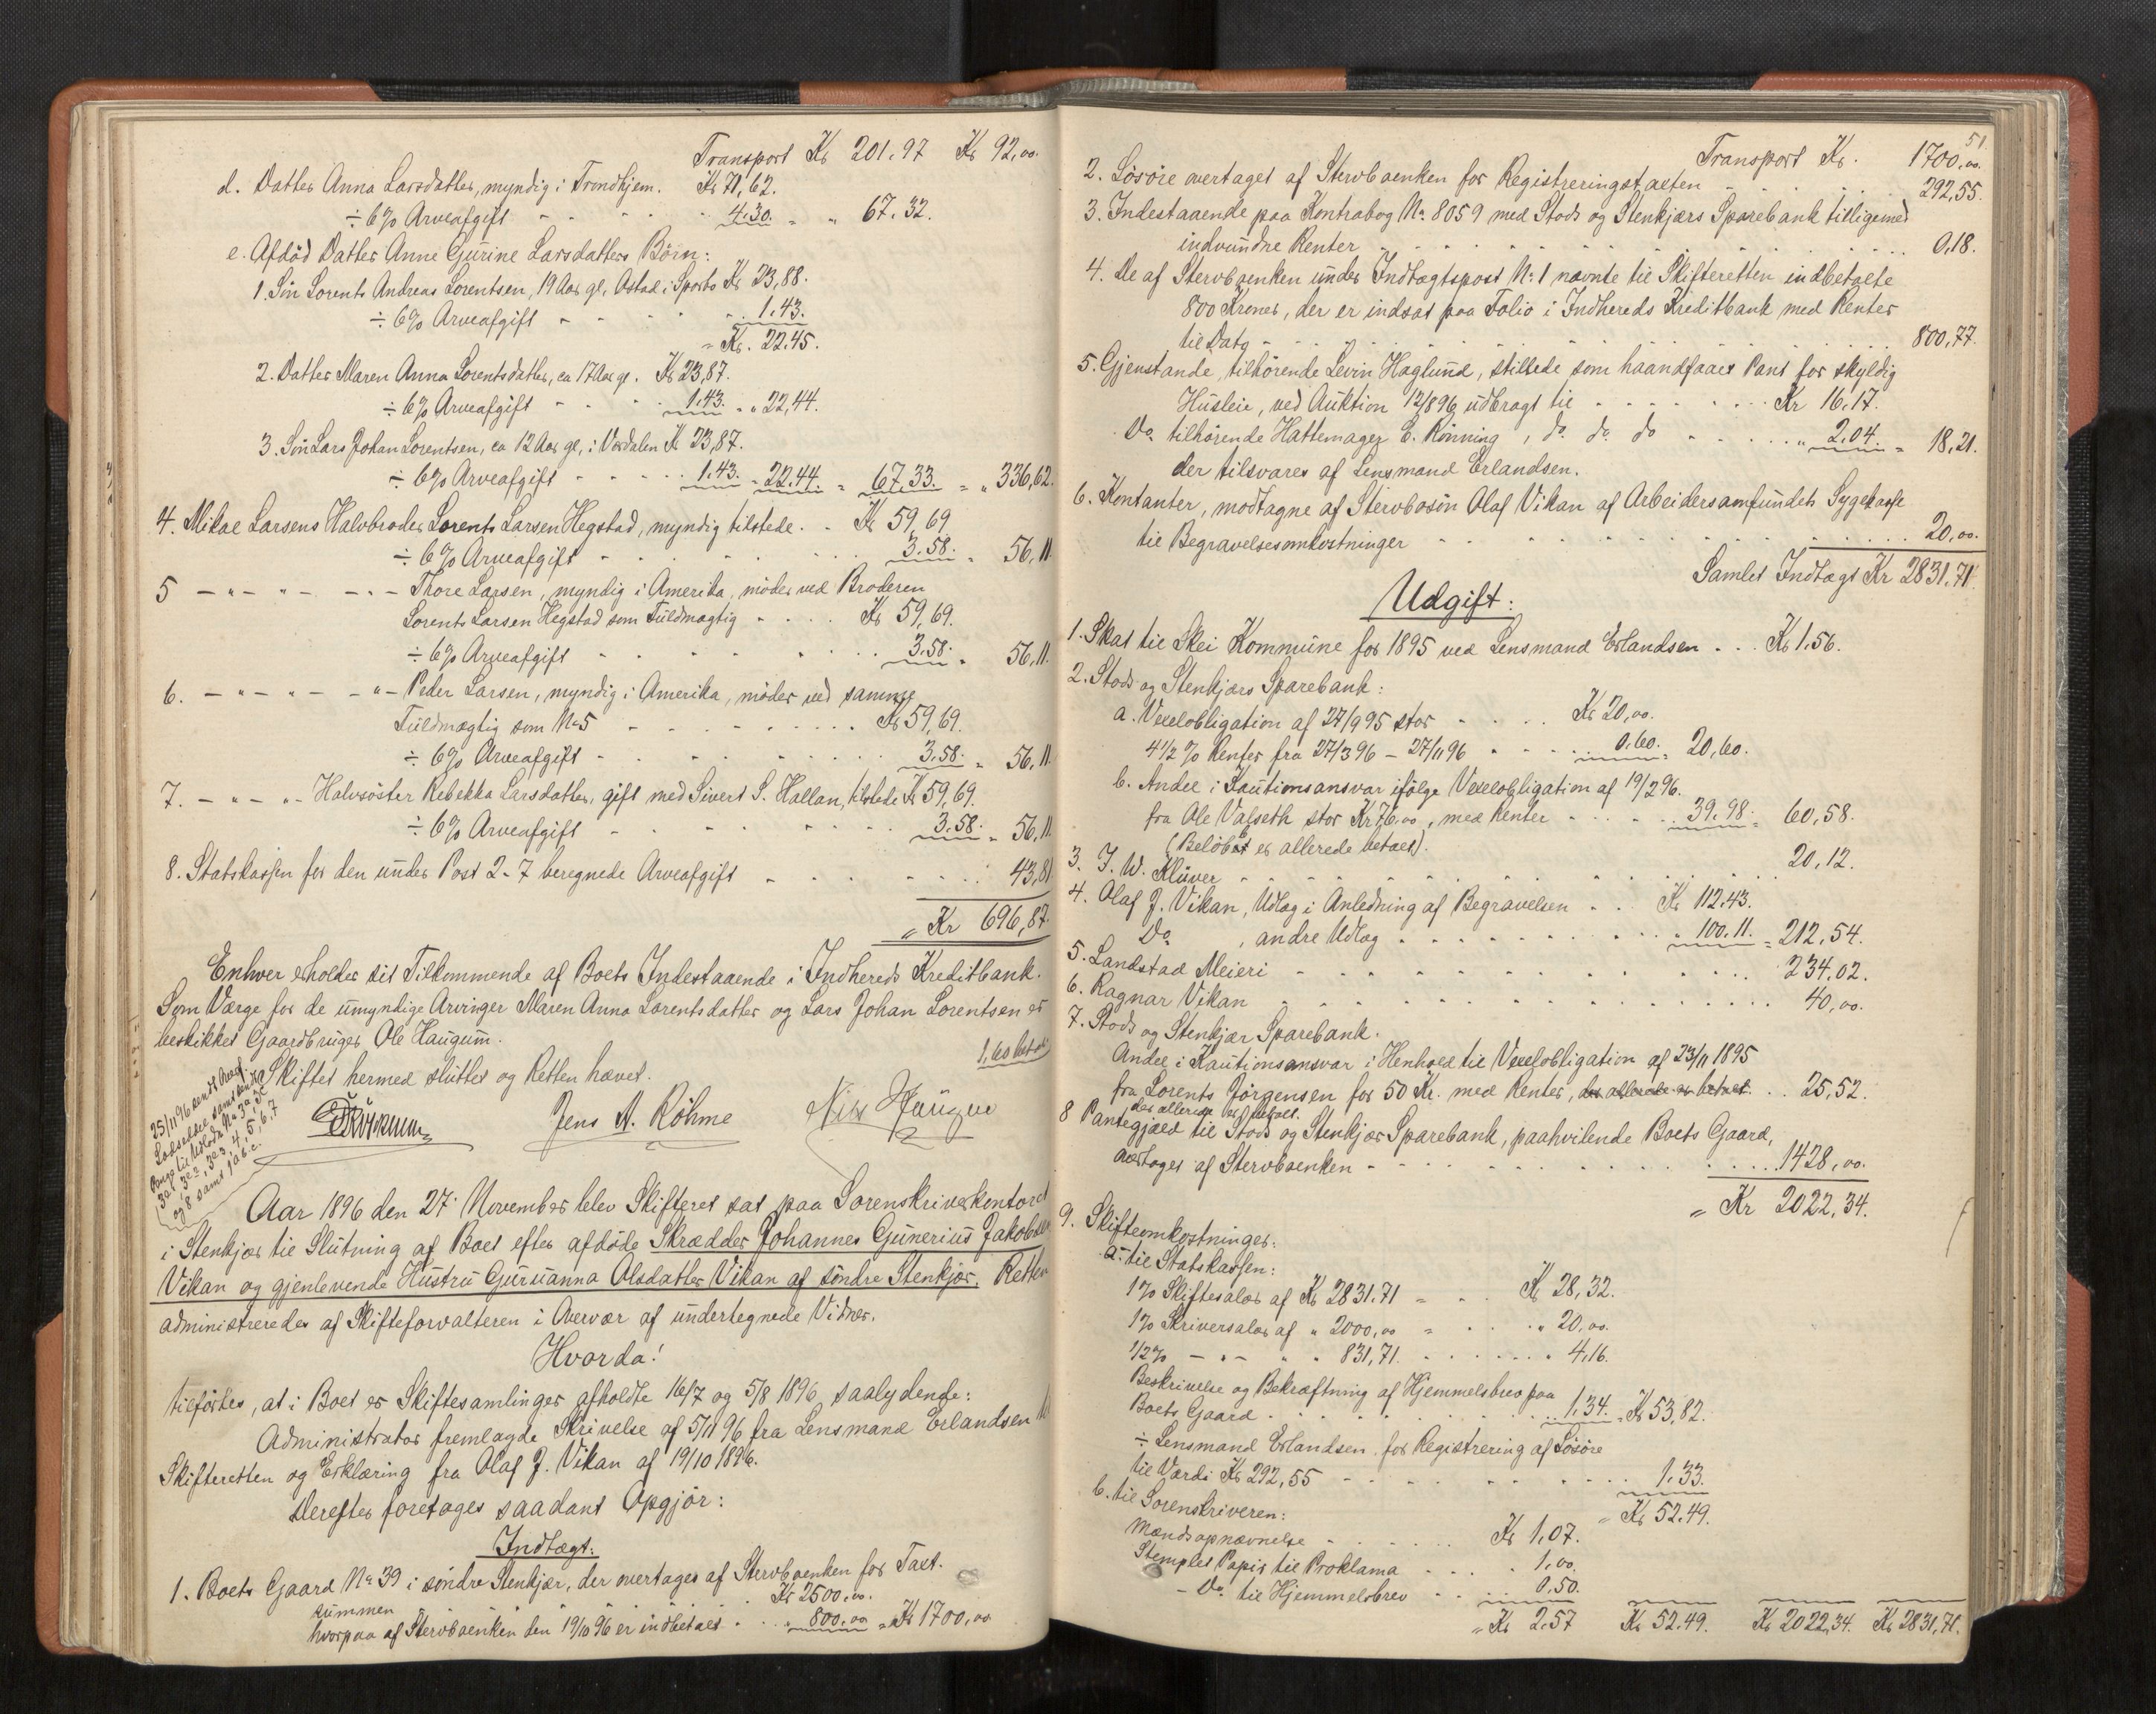 Transport Kr 201.97 Kr 92,00.
d. Datter Anna Larsdatter, myndig i Trondhjem. Kr 71,62.
÷ 6% Arveafgift - - - - 4.30. = " 67.32.
e. Afdöd Datter Anne Gurine Larsdatters Börn:
1. Sön Lorents Andreas Lorentsen, 19 Aar gl, Östad i Sparbo Kr 23,88.
÷ 6% Arveafgift - - - - 1.43.
= Kr. 22.45.
2. Datter Maren Anna Lorentsdatter, ca 17 Aar gl. Kr 23,87.
÷ 6% Arveafgift - - - 1.43. = " 22,44.
3. Sön Lars Johan Lorentsen, ca 12 Aar gl, i Værdalen Kr 23,87.
÷ 6% Arveafgift - - - - 1.43. = 22.44. = 67.33. = " 336,62.
4. Mikal Larsens Halvbroder Lorents Larsen Hegstad, myndig tilstede. . Kr 59,69
÷ 6% Arveafgift - - - - - 3.58. = 56,11.
5 - " - " - - " - Thore Larsen, myndig i Amerika, möder ved Broderen
Lorents Larsen Hegstad som Fuldmægtig . . . . Kr 59,69.
÷ 6% Arveafgift - - - - - 3.58. = 56.11.
6. - " - " - - " - Peder Larsen, myndig i Amerika, möder ved samme
Fuldmægtig som No 5 - - - - - Kr 59,69.
÷ 6% Arveafgift - - - - - 3.58. = 56,11.
7. - " - " - Halvsöster Rebekka Larsdatter, gift med Sivert S. Hallan, tilstede Kr 59,69.
÷ 6% Arveafgift - - - - - 3.58. = 56,11
8. Statskassen for den under Post 2-7 beregnede Arveafgift - - - - 43,81
= Kr 696,87.
Enhver erholder sit Tilkommende af Boets Indestaaende i Indhereds Kreditbank.
Som Værge for de umyndige Arvinger Maren Anna Lorentsdatter og Lars Johan Lorentsen er
beskikket Gaardbruger Ole Haugum.
1,60 betalt
Skiftet hermed sluttet og Retten hævet.
Jens A. Röhme
25/11 96 sendt
3a1, 3e2, 3e3, 4, 5, 6, 7
og 8 samt 1 a b c.
Aar 1896 den 27. November blev Skifteret sat paa Sorenskriverkontoret
i Stenkjær til Slutning af Boet efter afdöde Skrædder Johannes Gunerius Jakobsen
Vikan og gjenlevende Hustru Guruanna Olsdatter Vikan af söndre Stenkjær. Retten
administreredes af Skifteforvalteren i Overvær af undertegnede Vidner.
Hvorda!
tilförtes, at i Boet er Skiftesamlinger afholdte 16/7 og 5/8 1896, saalydende:
Administrator fremlagde Skrivelse af 5/11 96 fra Lensmand Erlandsen til
Skifteretten og Erklæring fra Olaf J. Vikan af 19/10 1896.
Derefter foretages saadant Opgjör:
Indtægt:
1. Boets Gaard No 39 i söndre Stenkjær, der overtages af Stervboenken for Taxt-
summen Kr 2500,00.
hvorpaa af Stervboenken den 19/10 96 er indbetalt . . . " 800.00 = Kr 1700,00
51.
Transport Kr. 1700,00.
2. Lösöre overtaget af Stervboenken for Registreringstaxten - - - - 292,55.
3. Indestaaende paa Kontrabog No 8059 med Stods og Stenkjærs Sparebank tilligemed
indvundne Renter - - - - - 0,18.
4. De af Stervboenken under Indtægtspost No 1 nævnte til Skifteretten indbetalte
800 Kroner, der er indsat paa Folio i Indhereds Kreditbank med Renter
til Dato - - - - - 800,77.
5. Gjenstande, tilhörende Levin Haglund, stillede som haandfaaet Pant for skyldig
Husleie, ved Auktion 12/8 96 udbragt til - - - - - Kr 16.17.
Do tilhörende Hattemager E. Rönning, do do do - - - . . " 2.04. = 18,21.
der tilsvares af Lensmand Erlandsen.
6. Kontanter, modtagne af Stervbosön Olaf Vikan af Arbeidersamfundets Sygekasse
til Begravelsesomkostninger - - - - - 20,00.
Samlet Indtægt Kr 2831.71
Udgift:
1. Skat til Skei Kommune for 1895 ved Lensmand Erlandsen . . . Kr 1.56.
2. Stods og Stenkjærs Sparebank:
a. Vexelobligation af 27/9 95 stor - - - . . Kr 20,00.
4 1/2 % Renter fra 27/3 96 - 27/11 96 - - - 0.60. = 20,60.
b. Andel i Kautionsansvar ifölge Vexelobligation af 19/2 96.
fra Ole Valseth stor Kr 76.00, med Renter - - - . . 39.98. = 60,58.
(Belöbet er allerede betalt).
3. J. W. Klüver - - - - - 20,12.
4. Olaf J. Vikan, Udlæg i Anledning af Begravelsen . . Kr 112.43.
Do , andre Udlæg - - - - - " 100.11. = 212,54.
5. Landstad Meieri - - - - - 234.02.
6. Ragnar Vikan - - - - - 40,00.
7. Stods og Stenkjær Sparebank.
Andel i Kautionsansvar i Henhold til Vexelobligation af 23/11 1895
fra Lorents Jörgensen for 50 Kr. med Renter, der allerede er betalt . . 25,52.
der allerede er betalt.
8 Pantegjæld til Stods og Stenkjær Sparebank, paahvilende Boets Gaard,
overtages af Stervboenken - - - - - 1428,00.
= Kr 2022,34.
9. Skifteomkostninger:
a. til Statskassen:
1% Skiftesalær af Kr 2831.71 = - . . Kr 28,32.
1% Skriversalær af " 2000,00 = - . . " 20,00.
1/2 % - " - " " 831,71. - - - " 4,16.
Beskrivelse og Bekræftning af Hjemmelsbrev paa
Boets Gaard - - - - - 1.34. = Kr 53,82.
÷ Lensmand Erlandsen for Registrering af Lösöre
til Værdi Kr 292,55 - - - - - 1.33.
= Kr 52.49.
b. til Sorenskriveren:
Mændsopnævnelse - - - - Kr 1,07.
Stemplet Papir til Proklama - - - 1,00.
- Do til Hjemmelsbrev - - - 0,50.
= Kr 2.57 Kr 52.49. Kr 2022,34. Kr 2831,71.